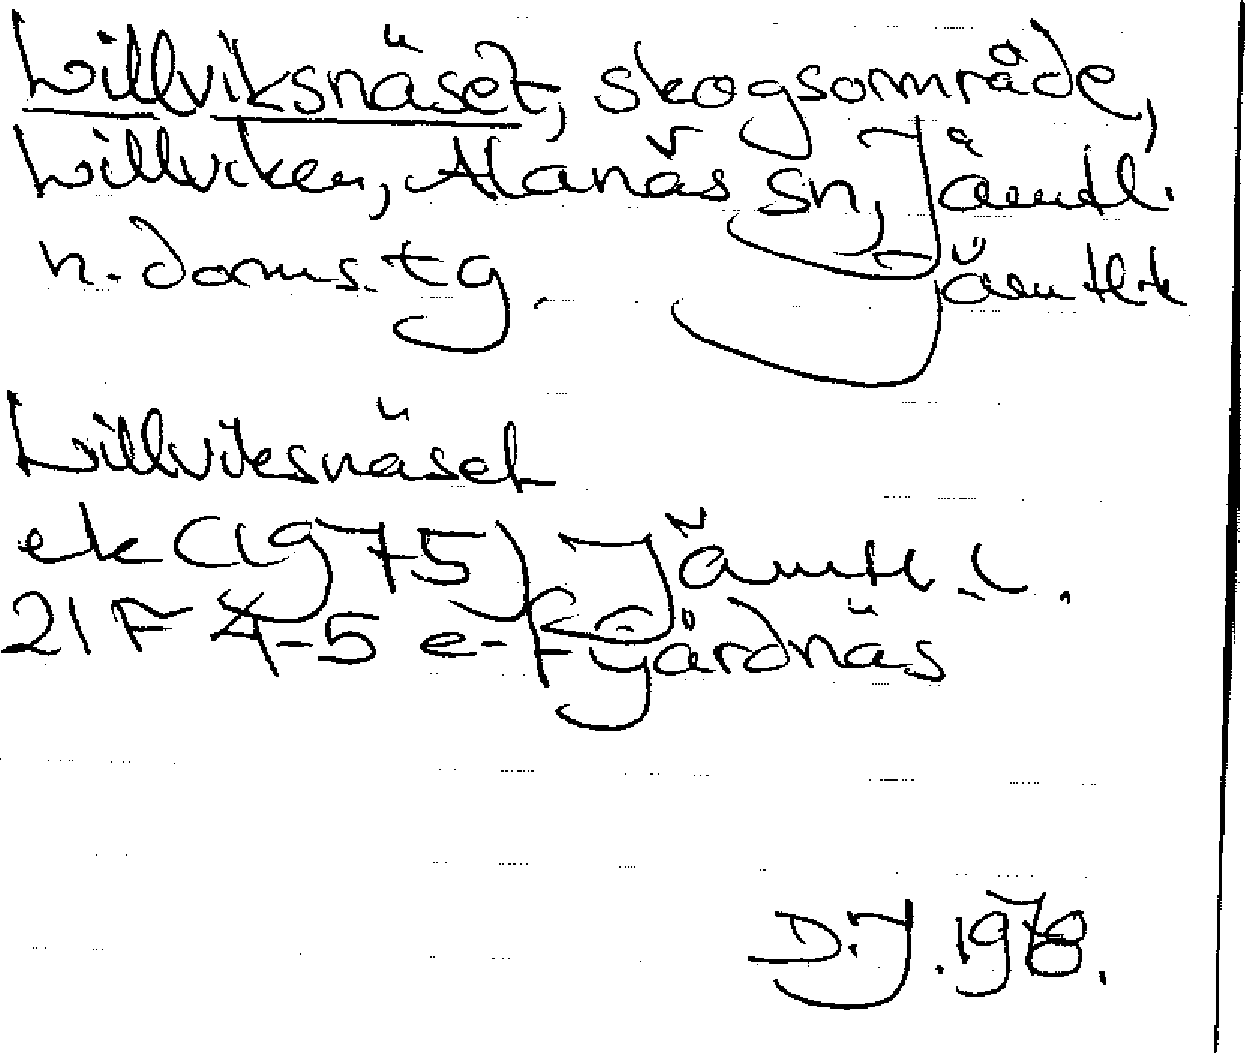 Lillviksnäset, skogsområde,
Lillviken, Alanäs sn, Jämtl.
n. doms. tg. Jämtl.
Lillviksnäset
ek (1975) Jämtl. l.
21 F 4-5 e-f Gärdnäs
D.J. 1978.